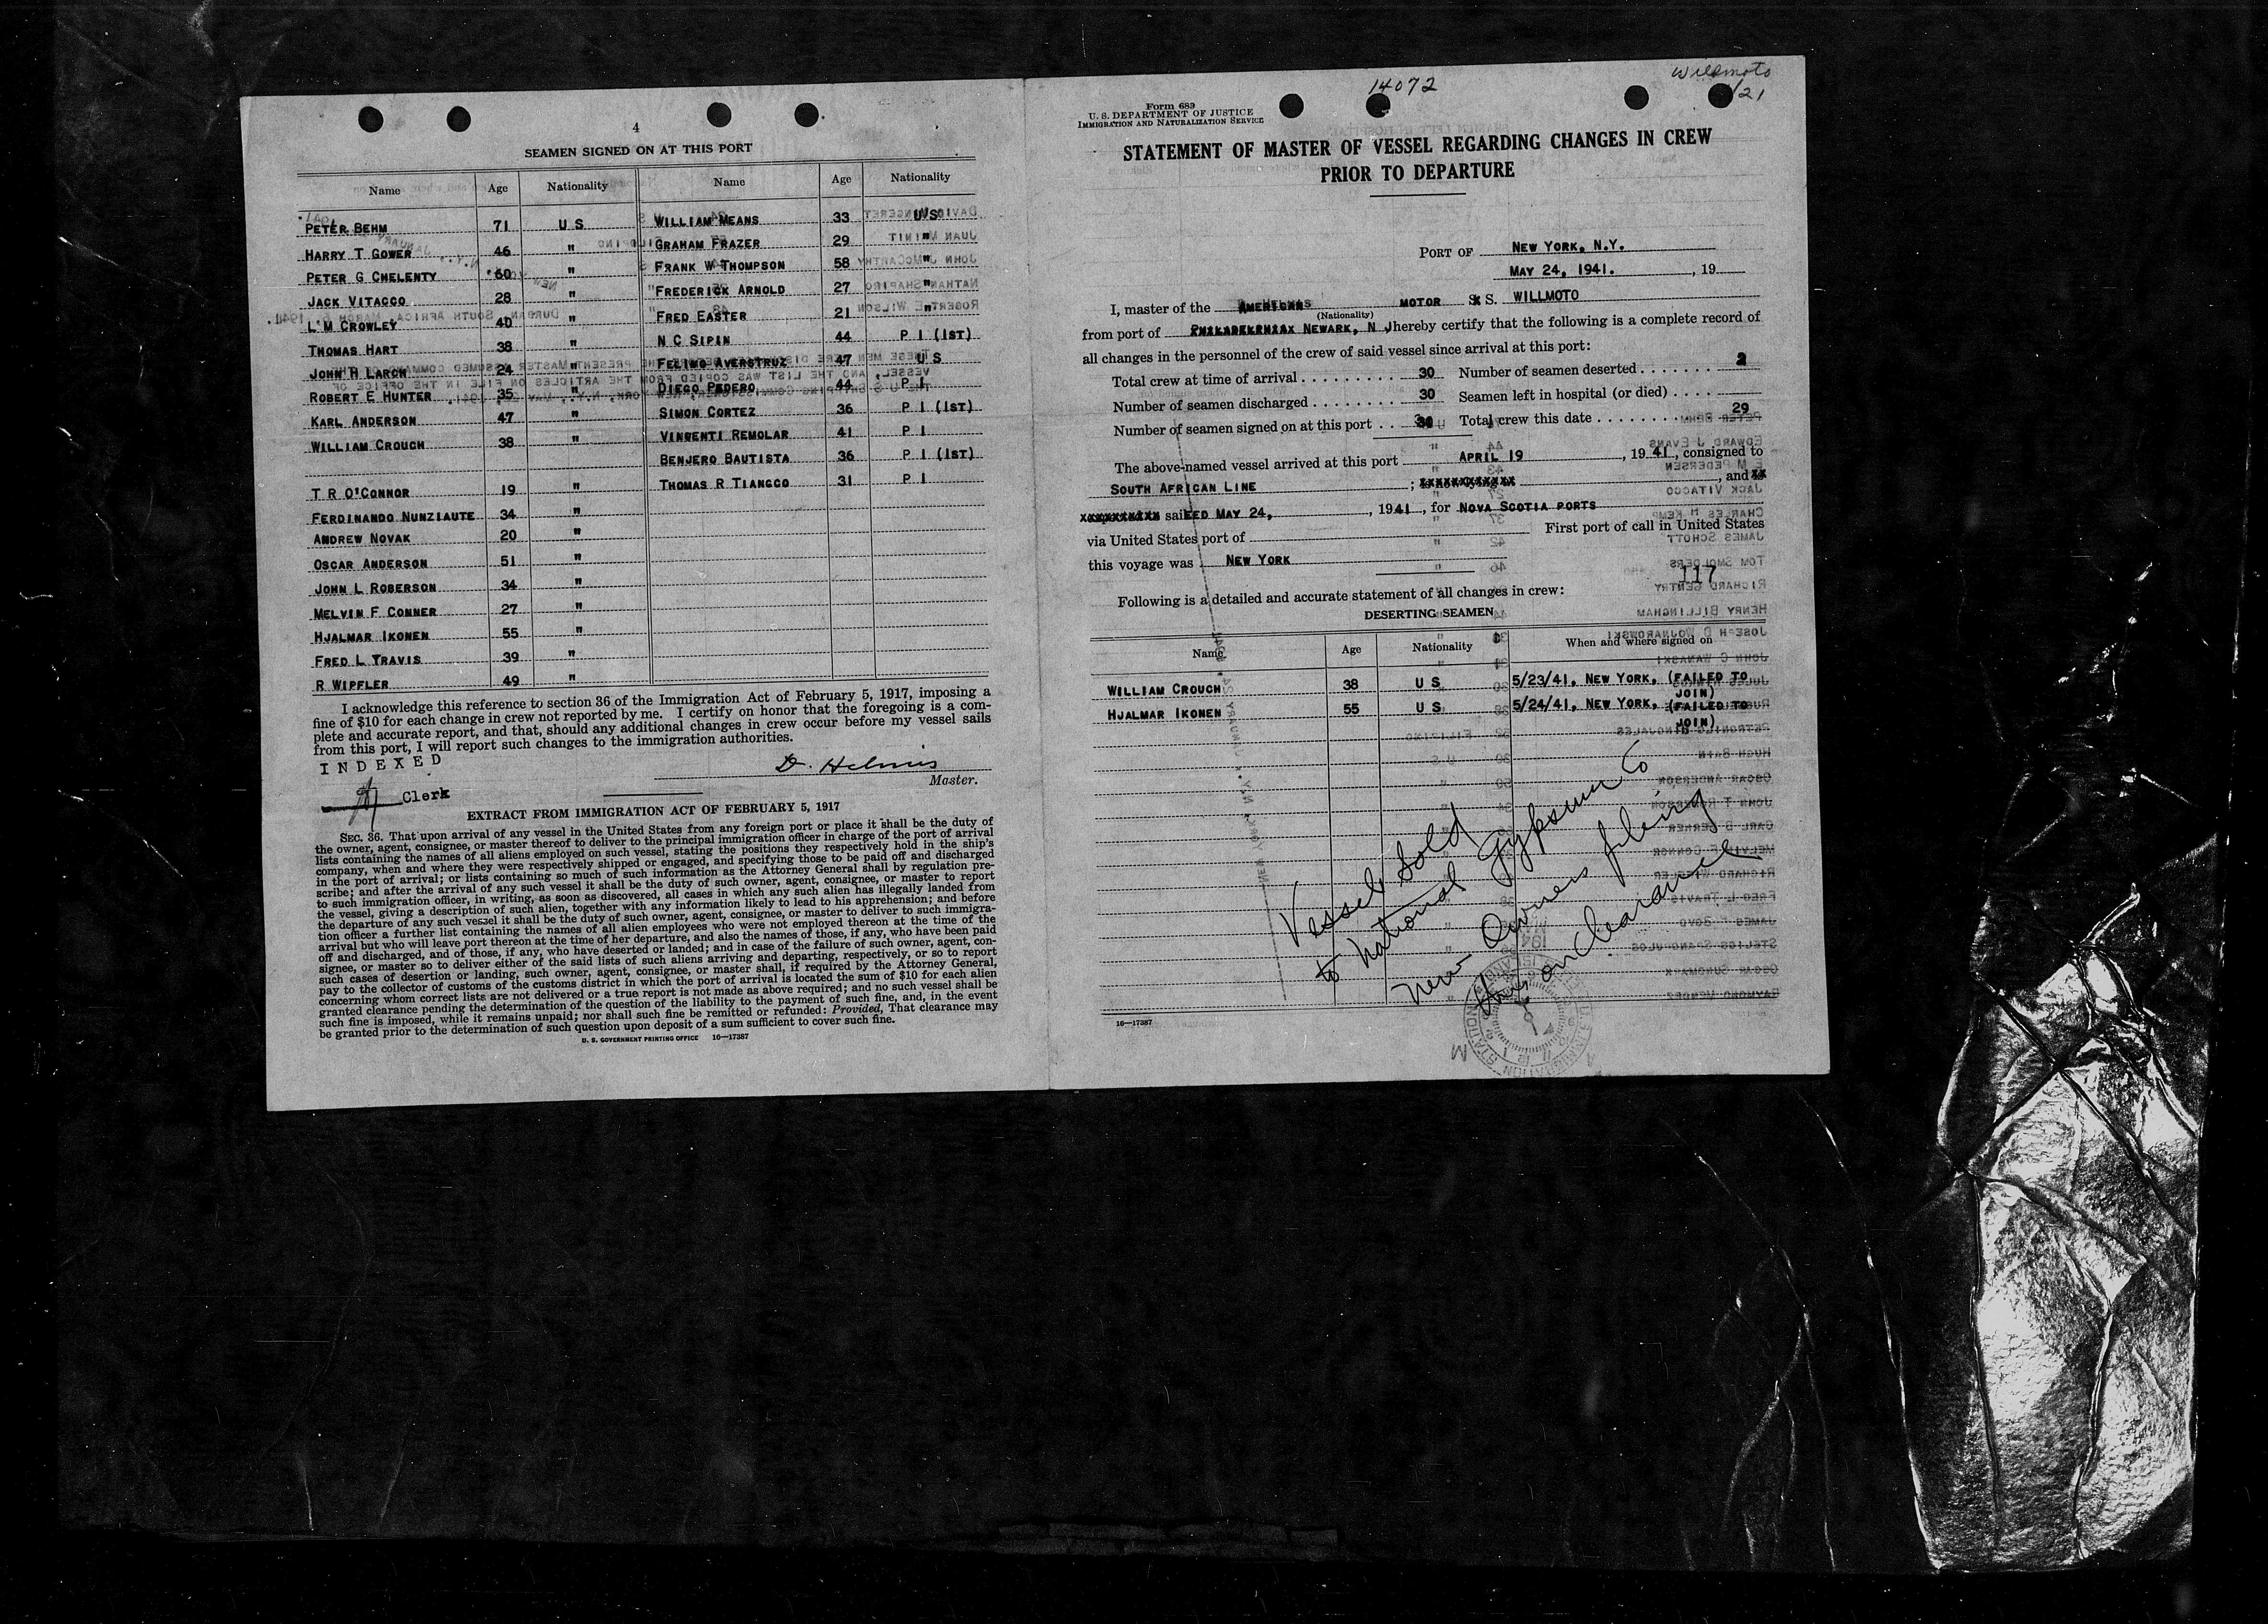 4
SEAMEN SIGNED ON AT THIS PORT
Name Age Nationality Name Age Nationality
PETER BEHM 71 U S WILLIAM MEANS 33 U S
HARRY T GOWER 46 " GRAHAM FRAZER 29 "
PETER G CHELENTY 60 " FRANK W THOMPSON 58 "
JACK VITACCO 28 " FREDERICK ARNOLD 27 "
L M CROWLEY 40 " FRED EASTER 21 "
THOMAS HART 38 " N C SIPIN 44 P I (1ST)
JOHN H LARCH 24 " FELIMO AVERSTRUZ 47 U S
ROBERT E HUNTER 35 " DIEGO PEDERO 44 P I
KARL ANDERSON 47 " SIMON CORTEZ 36 P I (1ST)
WILLIAM CROUCH 38 " VINCENTI REMOLAR 41 P I
BENJERO BAUTISTA 36 P I (1ST)
T R O'CONNOR 19 " THOMAS R TIANGCO 31 P I
FERDINANDO NUNZIAUTE 34 "
ANDREW NOVAK 20 "
OSCAR ANDERSON 51 "
JOHN L ROBERSON 34 "
MELVIN F CONNER 27 "
HJALMAR IKONEN 55 "
FRED L TRAVIS 39 "
R WIPFLER 49 "
I acknowledge this reference to section 36 of the Immigration Act of February 5, 1917, imposing a
fine of $10 for each change in crew not reported by me. I certify on honor that the foregoing is a com-
plete and accurate report, and that, should any additional changes in crew occur before my vessel sails
from this port, I will report such changes to the immigration authorities.
INDEXED
D. Helmis
Master.
Clerk
EXTRACT FROM IMMIGRATION ACT OF FEBRUARY 5, 1917
SEC. 36. That upon arrival of any vessel in the United States from any foreign port or place it shall be the duty of
the owner, agent, consignee, or master thereof to deliver to the principal immigration officer in charge of the port of arrival
lists containing the names of all aliens employed on such vessel, stating the positions they respectively hold in the ship's
company, when and where they were respectively shipped or engaged, and specifying those to be paid off and discharged
in the port of arrival; or lists containing so much of such information as the Attorney General shall by regulation pre-
scribe; and after the arrival of any such vessel it shall be the duty of such owner, agent, consignee, or master to report
to such immigration officer, in writing, as soon as discovered, all cases in which any such alien has illegally landed from
the vessel, giving a description of such alien, together with any information likely to lead to his apprehension; and before
the departure of any such vessel it shall be the duty of such owner, agent, consignee, or master to deliver to such immigra-
tion officer a further list containing the names of all alien employees who were not employed thereon at the time of the
arrival but who will leave port thereon at the time of her departure, and also the names of those, if any, who have been paid
off and discharged, and of those, if any, who have deserted or landed; and in case of the failure of such owner, agent, con-
signee, or master so to deliver either of the said lists of such aliens arriving and departing, respectively, or so to report
such cases of desertion or landing, such owner, agent, consignee, or master shall, if required by the Attorney General,
pay to the collector of customs of the customs district in which the port of arrival is located the sum of $10 for each alien
concerning whom correct lists are not delivered or a true report is not made as above required; and no such vessel shall be
granted clearance pending the determination of the question of the liability to the payment of such fine, and, in the event
such fine is imposed, while it remains unpaid; nor shall such fine be remitted or refunded: Provided, That clearance may
be granted prior to the determination of such question upon deposit of a sum sufficient to cover such fine.
U. S. GOVERNMENT PRINTING OFFICE 16—17387
14072
Willmoto
21
Form 689
U. S. DEPARTMENT OF JUSTICE
IMMIGRATION AND NATURALIZATION SERVICE
STATEMENT OF MASTER OF VESSEL REGARDING CHANGES IN CREW
PRIOR TO DEPARTURE
PORT OF NEW YORK, N.Y.
MAY 24, 1941. , 19
I, master of the AMERICAN MOTOR S. WILLMOTO
(Nationality)
from port of PHILADELPHIA NEWARK, N J hereby certify that the following is a complete record of
all changes in the personnel of the crew of said vessel since arrival at this port:
Total crew at time of arrival 30 Number of seamen deserted 2
Number of seamen discharged 30 Seamen left in hospital (or died)
Number of seamen signed on at this port Total crew this date 29
The above-named vessel arrived at this port APRIL 19 , 1941, consigned to
SOUTH AFRICAN LINE ; , and
sailED MAY 24, , 1941, for NOVA SCOTIA PORTS
via United States port of First port of call in United States
this voyage was NEW YORK
117
Following is a detailed and accurate statement of all changes in crew:
DESERTING SEAMEN
Name Age Nationality When and where signed on
WILLIAM CROUCH 38 U S 5/23/41, NEW YORK, (FAILED TO JOIN)
HJALMAR IKONEN 55 U S 5/24/41, NEW YORK, (FAILED TO JOIN)
Vessel Sold
to National Gypsum Co
new Owners filing
this on clearance
16—17387